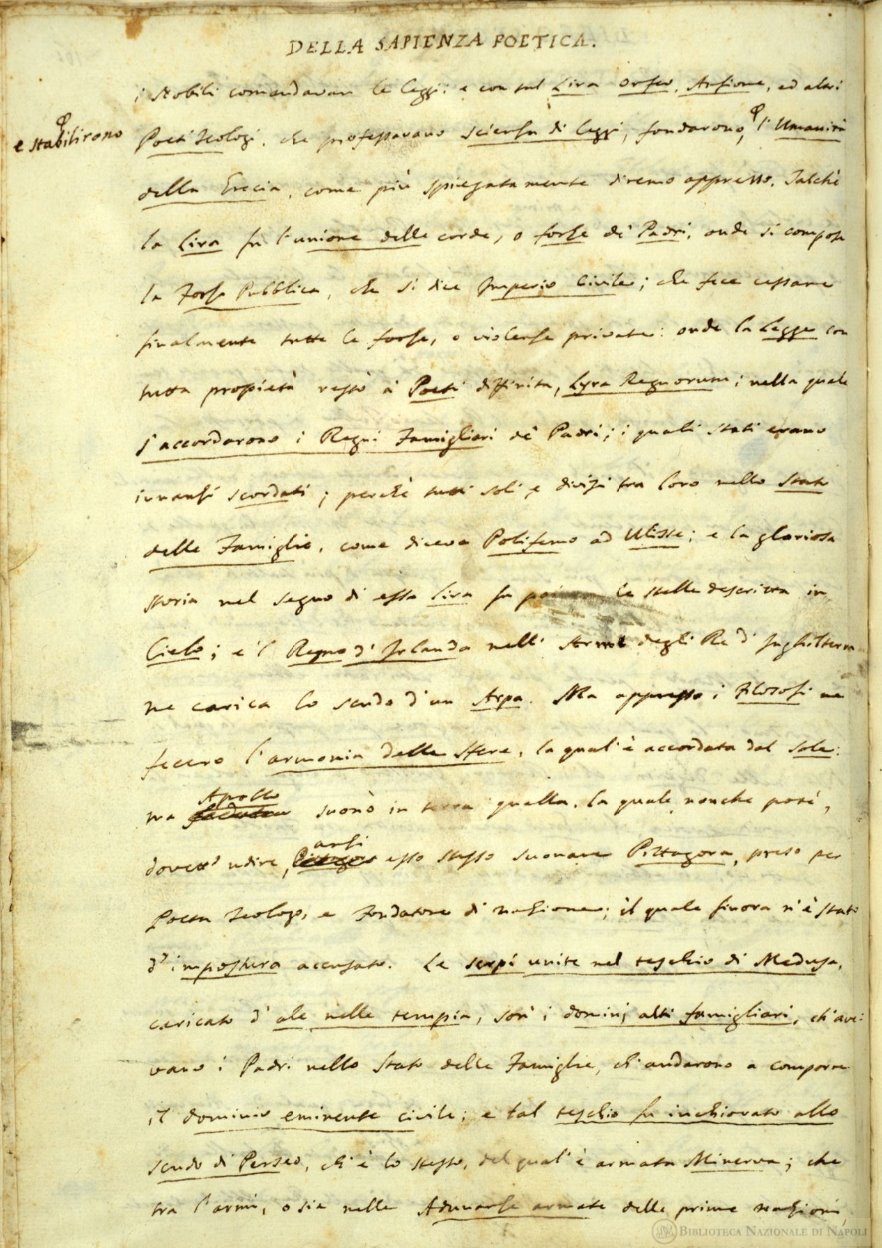 DELLA SAPIENZA POETICA.
i Nobili comandavan le leggi: e con tal Lira Orfeo, Anfione, ed altri
e stabilirono
Poeti Teologi, che professavano scienza di leggi, fondarono, l'Umanità
della Grecia, come più spiegatamente diremo appresso. Talchè
la Lira fu l'unione delle corde, o forze de' Padri, onde si compose
la Forza Pubblica, che si dice Imperio Civile; che fece cessare
finalmente tutte le forze, o violenze private: onde la Legge con
tutta propietà restò a' Poeti diffinita, Lyra Regnorum; nella quale
s'accordarono i Regni Famigliari de' Padri; i quali stati erano
innanzi scordati; perchè tutti soli, e divisi tra loro nello Stato
delle Famiglie, come diceva Polifemo ad Ulisse; e la gloriosa
storia nel segno di essa Lira fu le stelle descritta in
Cielo; e 'l Regno d'Irlanda nell' Arme degli Re d'Inghilterra
ne carica lo scudo d'un Arpa. Ma appresso i Filosofi ne
fecero l'armonia delle sfere, la qual'è accordata dal sole:
ma Apollo suonò in terra quella, la quale, nonchè potè,
dovett' udire, anzi esso stesso suonare Pittagora, preso per
Poeta Teologo, e Fondatore di nazione; il quale finora n'è stato
d'impostura accusato. Le serpi unite nel teschio di Medusa,
caricato d'ale nelle tempia, son' i dominj alti famigliari, ch'ave-
vano i Padri nello Stato delle Famiglie, ch'andarono a comporre
il dominio eminente civile; e tal teschio fu inchiovato allo
scudo di Perseo, ch'è lo stesso, del qual'è armata Minerva; che
tra l'armi, o sia nelle Adunanze armate delle prime nazioni,
BIBLIOTECA NAZIONALE DI NAPOLI